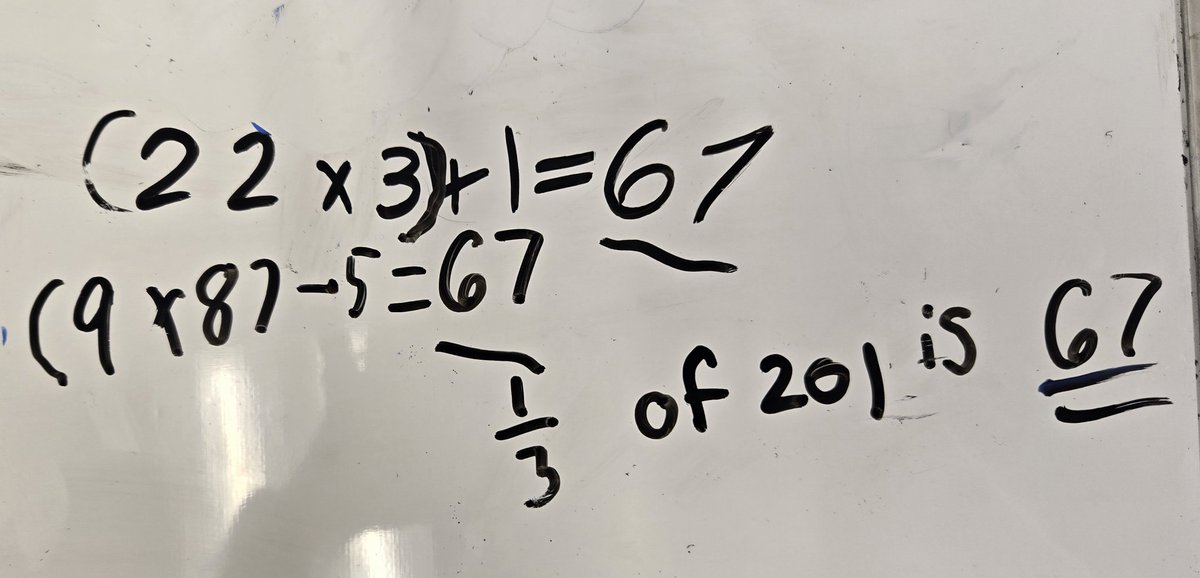 (22 x 3)+1=67
(9 x 8)-5=67
1/3 of 201 is 67